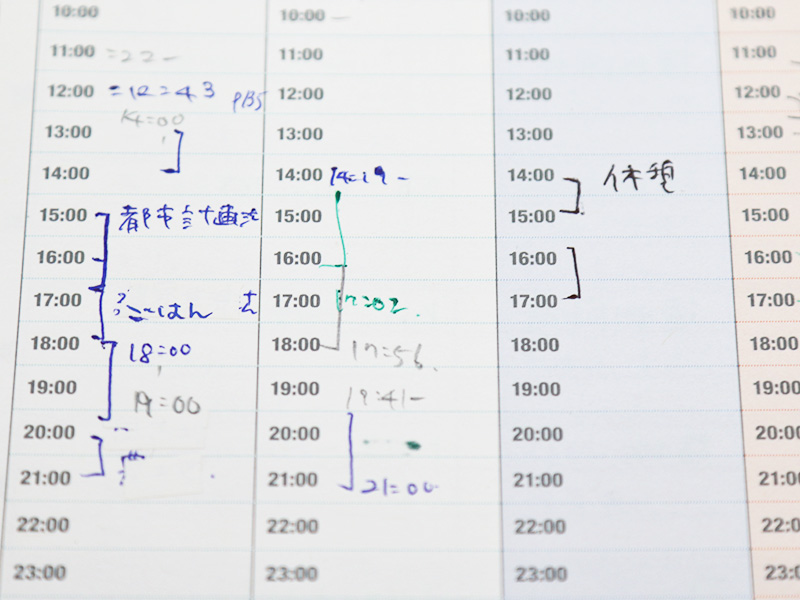 10:00 10:00 10:00 10:00
11:00 :22- 11:00 11:00 11:00
12:00 =12=43 PBS 12:00 12:00 12:00
K=00
13:00 13:00 13:00 13:00
14:00 14:19- 14:00 休憩 14:00
15:00 都市計画法 15:00 15:00 15:00
16:00 16:00 16:00 16:00
17:00 ごはん 17:00 17:02. 17:00 17:00
18:00 18:00 18:00 17=56. 18:00 18:00
19:00 19:00 19:00 19:41- 19:00 19:00
20:00 20:00 20:00
21:00 21:00 21:00 21:00
22:00 22:00 22:00
23:00 23:00 23:00